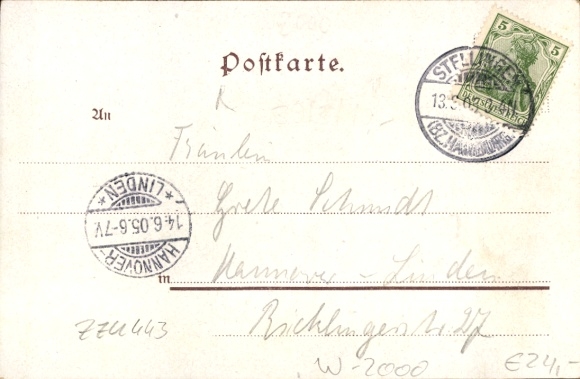 Postkarte.
5 5
STELLINGEN
(BZ. HAMBURG)
An
Fräulein
Grete Schmidt
Hannover - Linden
in
Ricklingerstr. 27
* LINDEN *
14.6.05.6-7V.
HANNOVER-
ZZU443
W-2000
€24,-